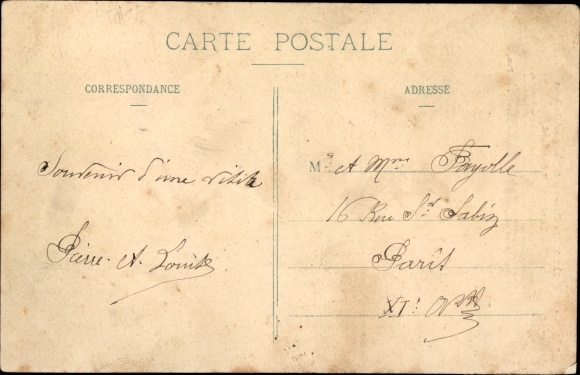 CARTE POSTALE
CORRESPONDANCE
ADRESSE
Souvenir d'une visite
Pierre et Louise
M. et Mme Fayolle
16 Rue St Sabin
Paris
XIe